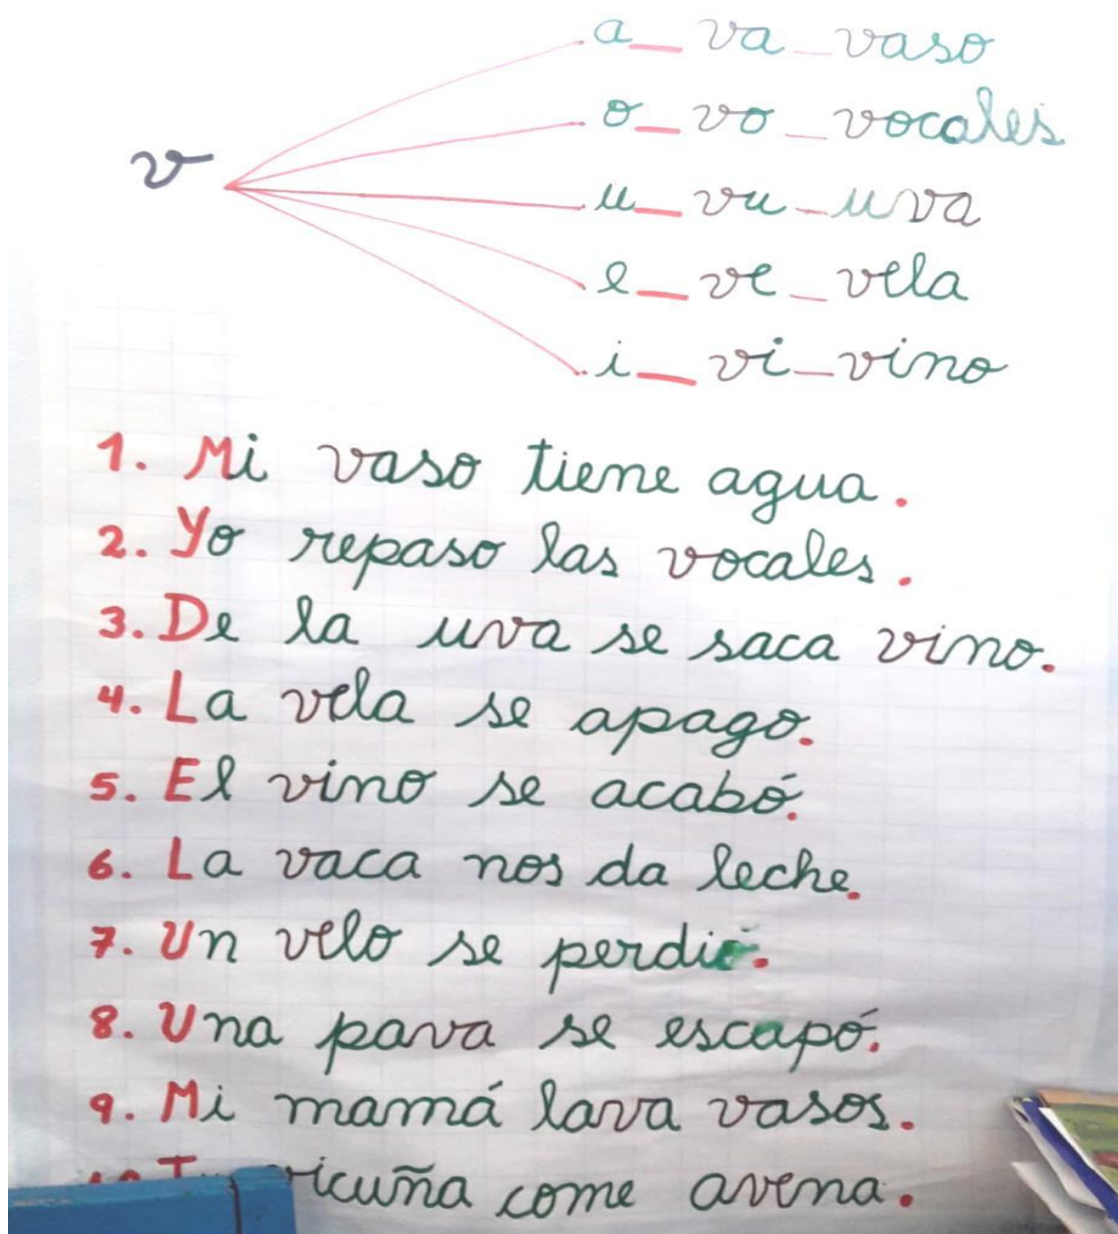 v
a_ va_vaso
o_ vo_vocales
u_ vu_uva
e_ ve_vela
i_ vi_vino
1. Mi vaso tiene agua.
2. Yo repaso las vocales.
3. De la uva se saca vino.
4. La vela se apago.
5. El vino se acabó.
6. La vaca nos da leche.
7. Un velo se perdió.
8. Una pava se escapó.
9. Mi mamá lava vasos.
come avena.